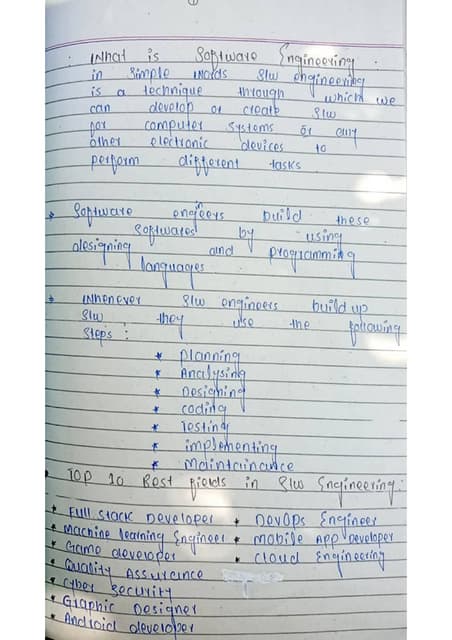 What is Software Engineering
in simple words S/w engineering
is a technique through which we
can develop or create S/w
for computer systems or any
other electronic devices to
perform different tasks.
* Software engeers build these
Softwares by using
designing and programming
languages
* Whenever S/w engineers build up
S/w they use the following
Steps :
* Planning
* Analysing
* Designing
* coding
* Testing
* implementing
* Maintainance
TOP 10 Best fields in S/w Engineering:
* Full stack Developer
* Machine learning Engineer
* Game developer
* Quality Assurance
* Cyber security
* Graphic Designer
* Android developer
* DevOps Engineer
* Mobile App Developer
* Cloud Engineering